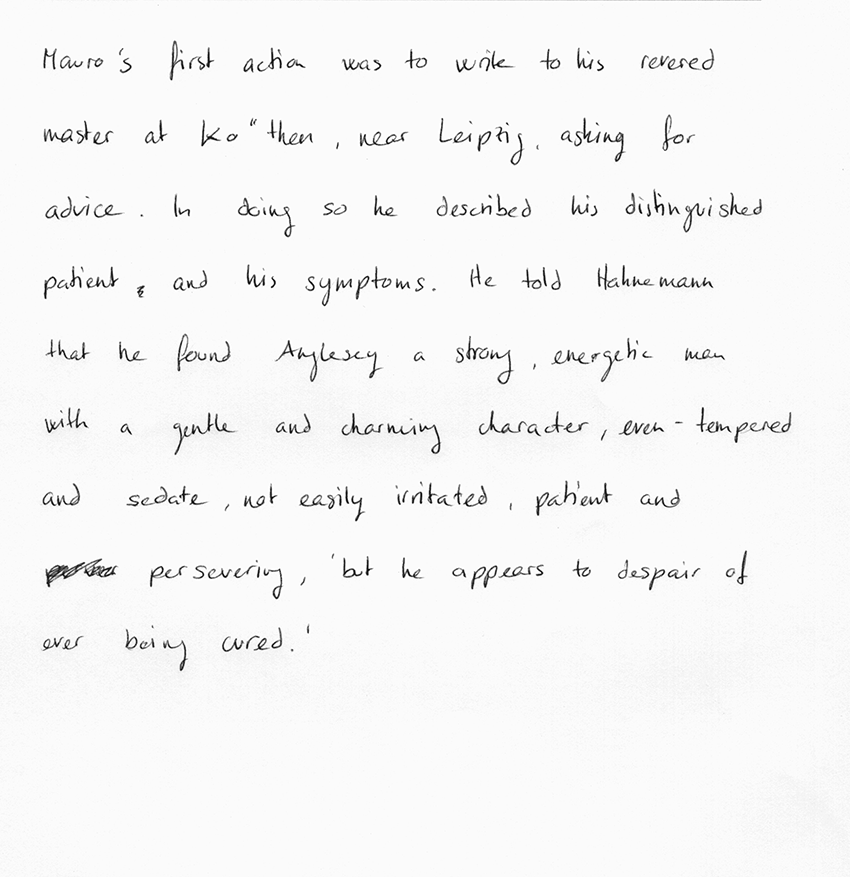 Mauro's first action was to write to his revered
master at Ko"then, near Leipzig, asking for
advice. In doing so he described his distinguished
patient, and his symptoms. He told Hahnemann
that he found Anglesey a strong, energetic man
with a gentle and charming character, even-tempered
and sedate, not easily irritated, patient and
persevering, 'but he appears to despair of
ever being cured.'